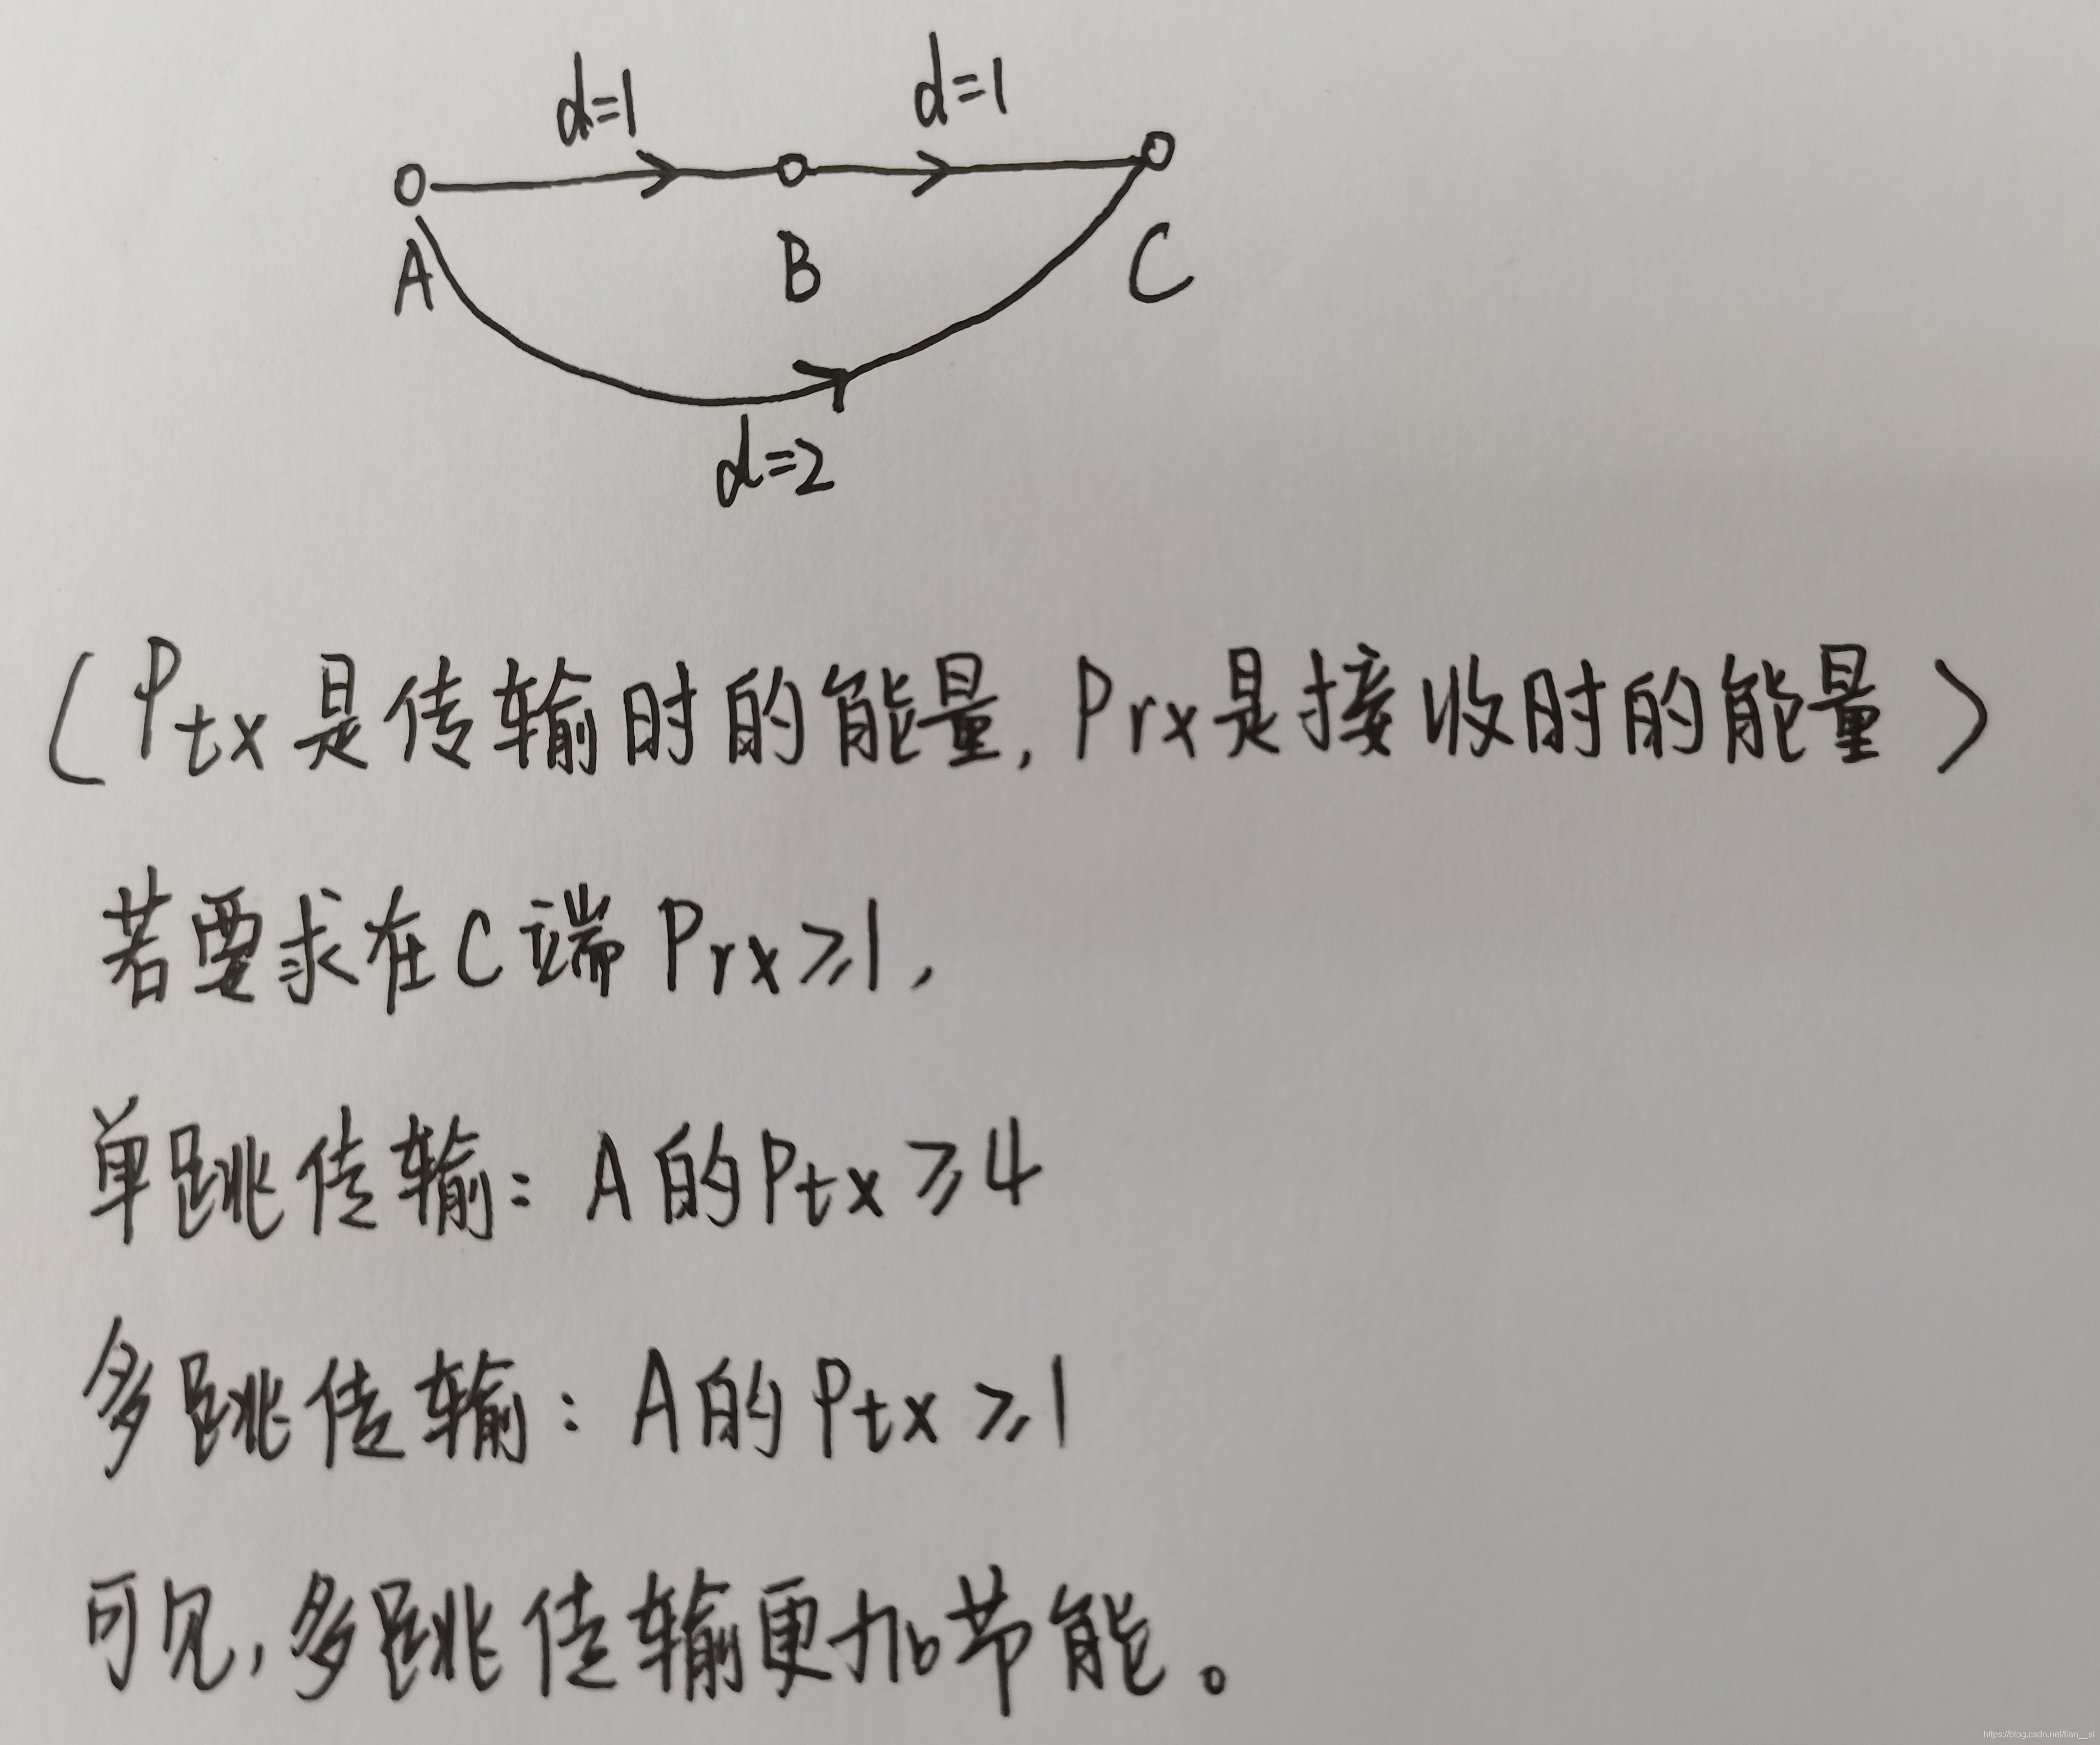 d=1 d=1
A B C
d=2
(Ptx是传输时的能量, Prx是接收时的能量)
若要求在C端 Prx≥1,
单跳传输: A的Ptx≥4
多跳传输: A的Ptx≥1
可见,多跳传输更加节能。
https://blog.csdn.net/tian__si